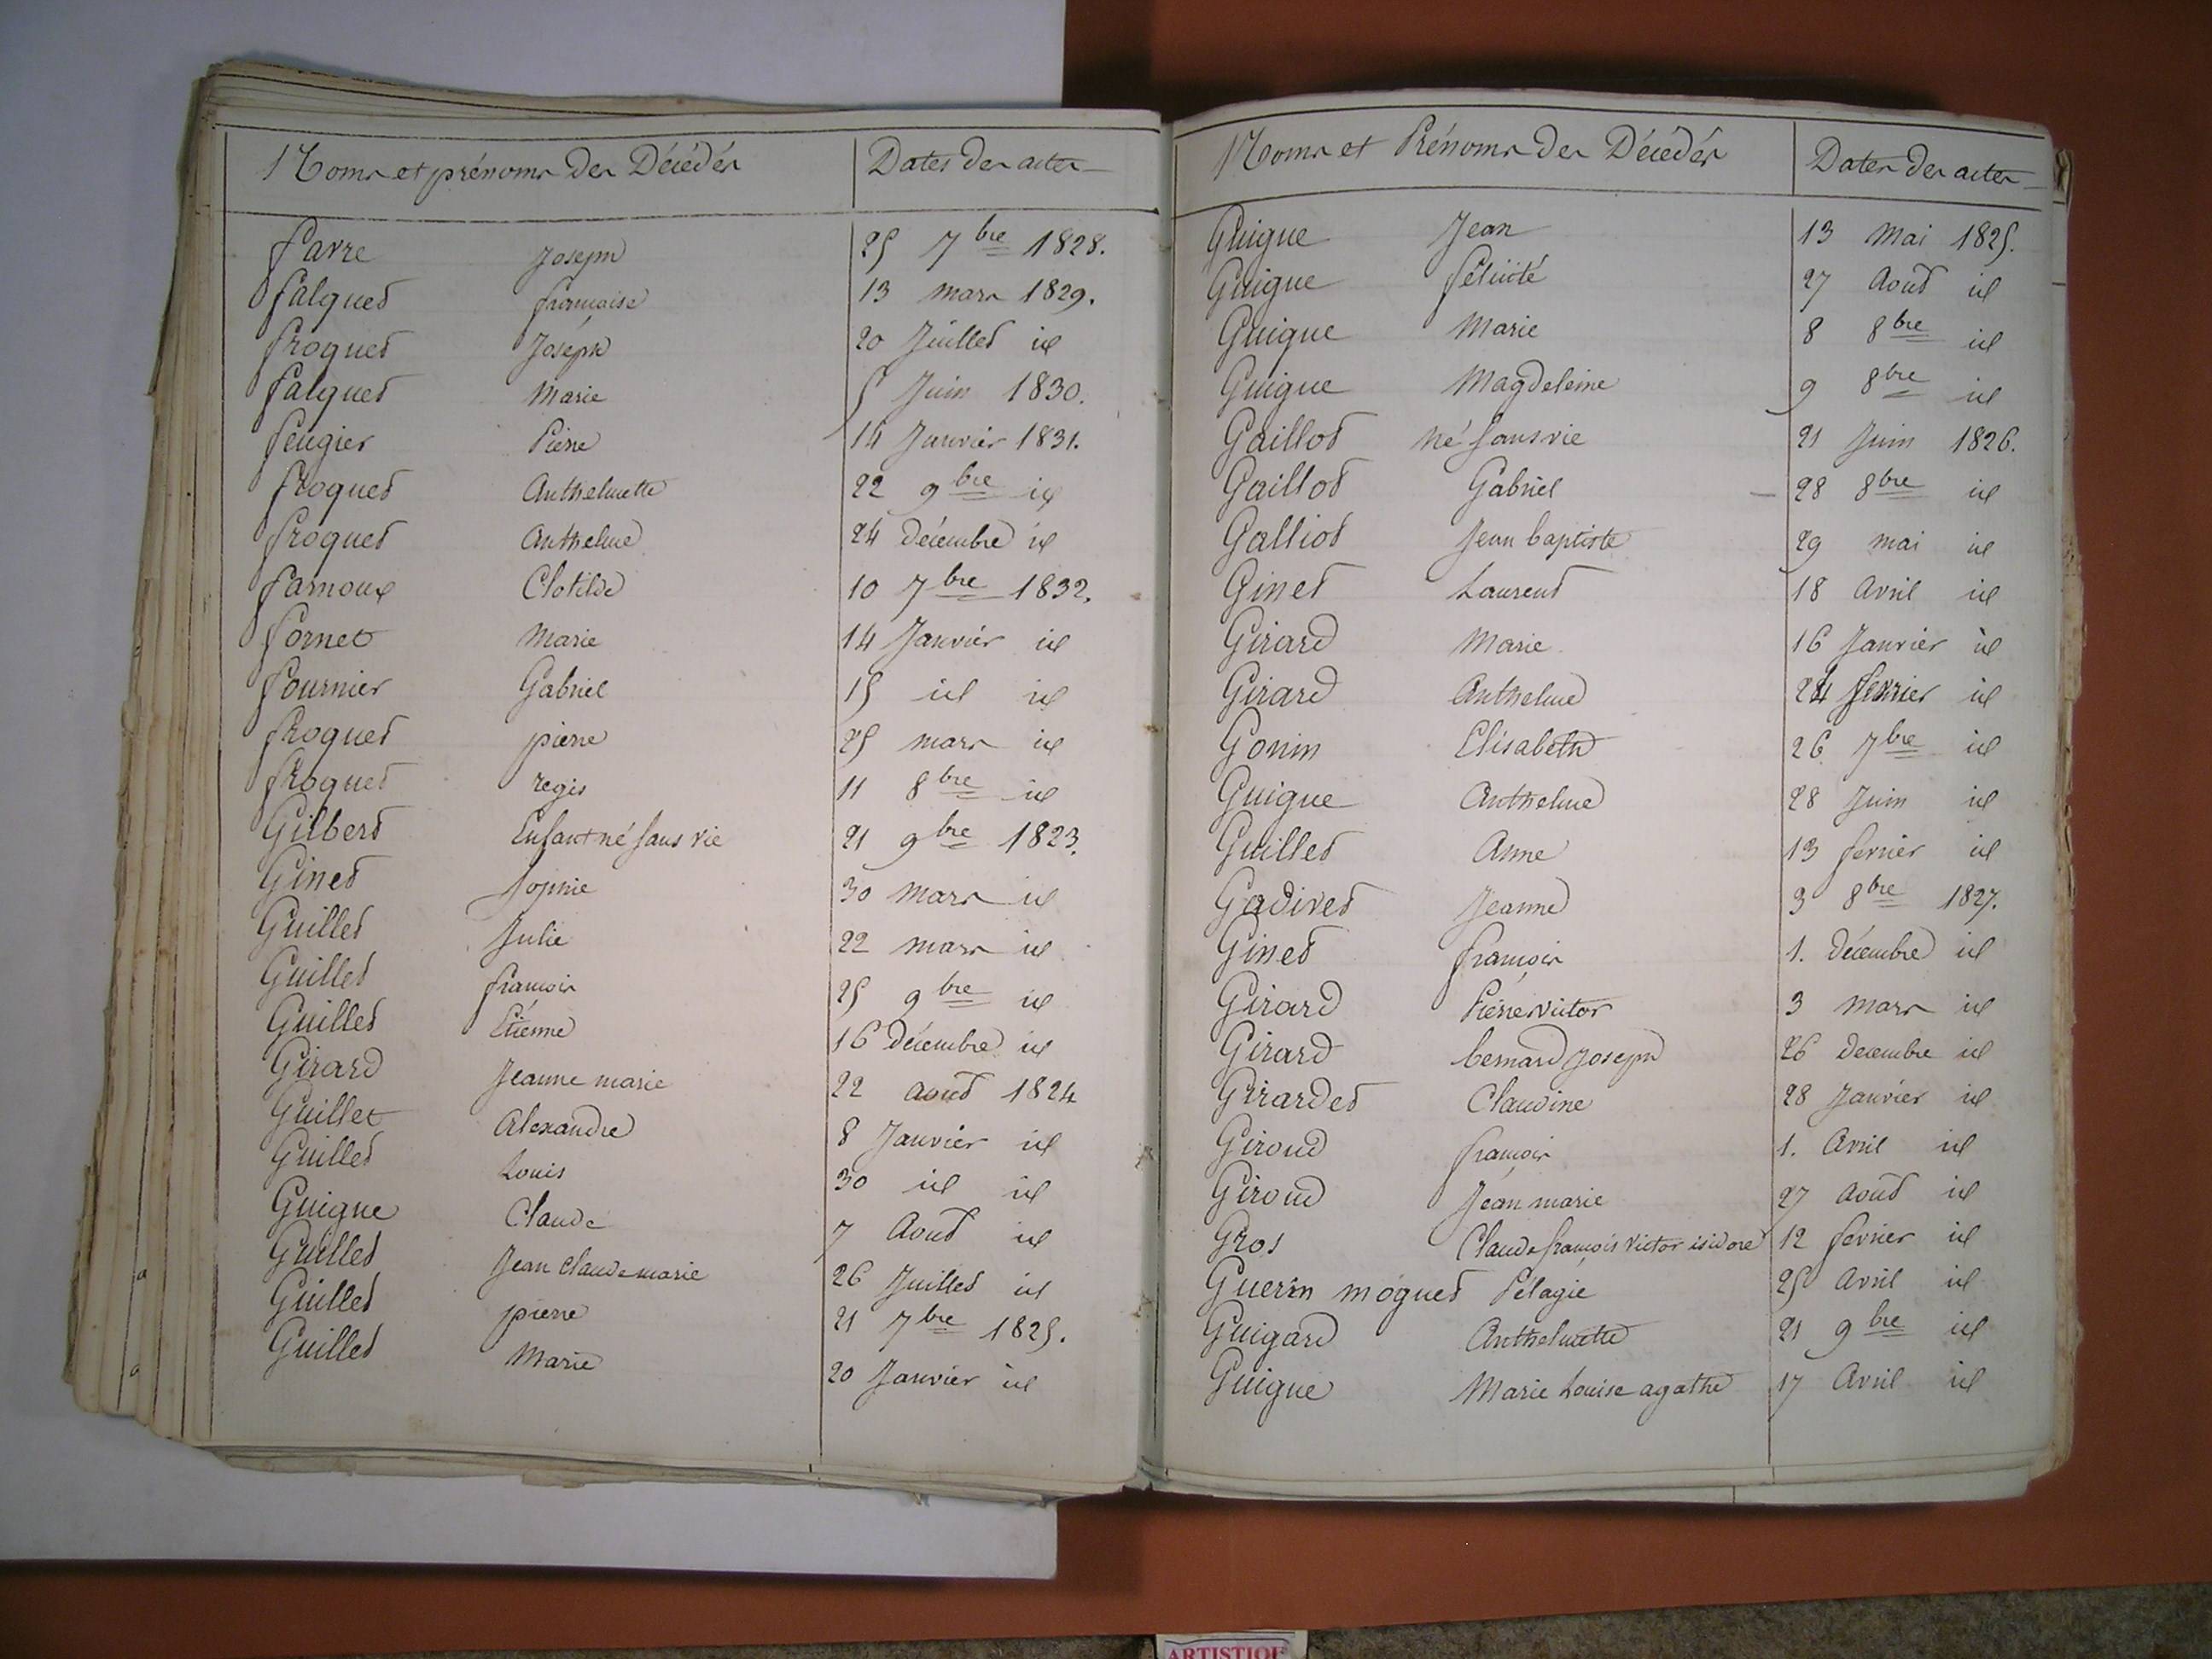 Noms et prénoms des Décédés Dates des actes
favre Joseph 25 7bre 1828.
falquet françoise 13 mars 1829.
froquet Joseph 20 Juillet id
falquet Marie 5 Juin 1830.
feugier Pierre 14 Janvier 1831.
froquet Anthelmette 22 9bre id
froquet Anthelme 24 décembre id
farnoux Clotilde 10 7bre 1832.
fornet Marie 14 Janvier id
fournier Gabriel 15 id id
froquet pierre 25 mars id
froquet regis 11 8bre id
Gilbert Enfant né sans vie 21 9bre 1823.
Ginet Sophie 30 mars id
Guillet Julie 22 mars id
Guillet françois 25 9bre id
Guillet Etienne 16 décembre id
Girard Jeanne marie 22 aout 1824
Guillet Alexandre 8 Janvier id
Guillet Louis 30 id id
Guigue Claude 7 Aout id
Guillet Jean Claude marie 26 Juillet id
Guillet pierre 21 7bre 1825.
Guillet Marie 20 Janvier id
Noms et Prénoms des Décédés Dates des actes
Guigue Jean 13 Mai 1825.
Guigue félicité 27 Aout id
Guigue Marie 8 8bre id
Guigue Magdeleine 9 8bre id
Gaillot né sans vie 21 Juin 1826.
Gaillot Gabriel 28 8bre id
Galliot Jean baptiste 29 mai id
Ginet Laurent 18 Avril id
Girard Marie 16 Janvier id
Girard Anthelme 24 fevrier id
Gonin Elisabeth 26 7bre id
Guigue Anthelme 28 Juin id
Guillet Anne 13 fevrier id
Gadivet Jeanne 3 8bre 1827.
Ginet françois 1. décembre id
Girard Pierre victor 3 Mars id
Girard bernard Joseph 26 Decembre id
Girardet Claudine 28 Janvier id
Giroud françois 1. Avril id
Giroud Jean marie 27 Aout id
Gros Claude françois victor isidore 12 fevrier id
Guerin moguet Pélagie 25 Avril id
Guigard Anthelmette 21 9bre id
Guigue Marie Louise agathe 17 Avril id